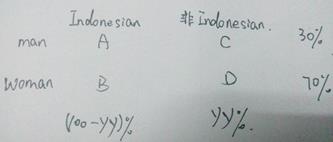 Indonesian 非Indonesian.
man A C 30%
Woman B D 70%
(100-YY)% YY%.